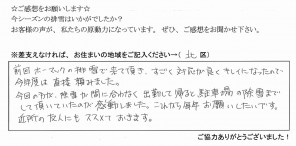 ☆ご感想をお願いします☆
今シーズンの排雪はいかがでしたか？
お客様の声が、私たちの原動力になっています。ぜひ、ご感想をお聞かせ下さい。
※差支えなければ、お住まいの地域をご記入ください→（ 北 区）
前回ホーマックの排雪で来て頂き、すごく対応が良くキレイになったので
今年度は直接頼みました。
今回の方が、除雪が間に合わなく出勤して帰ると駐車場の除雪まで
して頂いていたのが感動しました。これからも毎年お願いしたいです。
近所の友人にもススメておきます。
ご協力ありがとうございました！